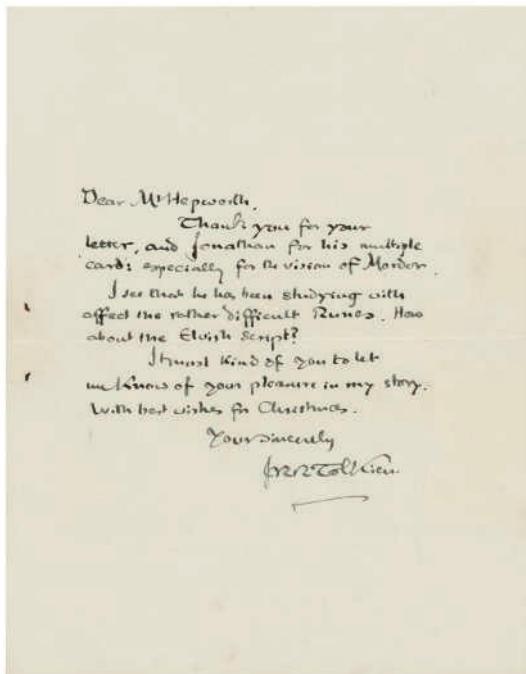 Dear Mr Hepworth.
Thank you for your
letter, and Jonathan for his multiple
card: especially for the vision of Mordor.
I see that he has been studying with
affect the rather difficult Runes. How
about the Elvish script?
It most kind of you to let
me know of your pleasure in my story.
With best wishes for Christmas.
Yours sincerely
JRRTolkien.